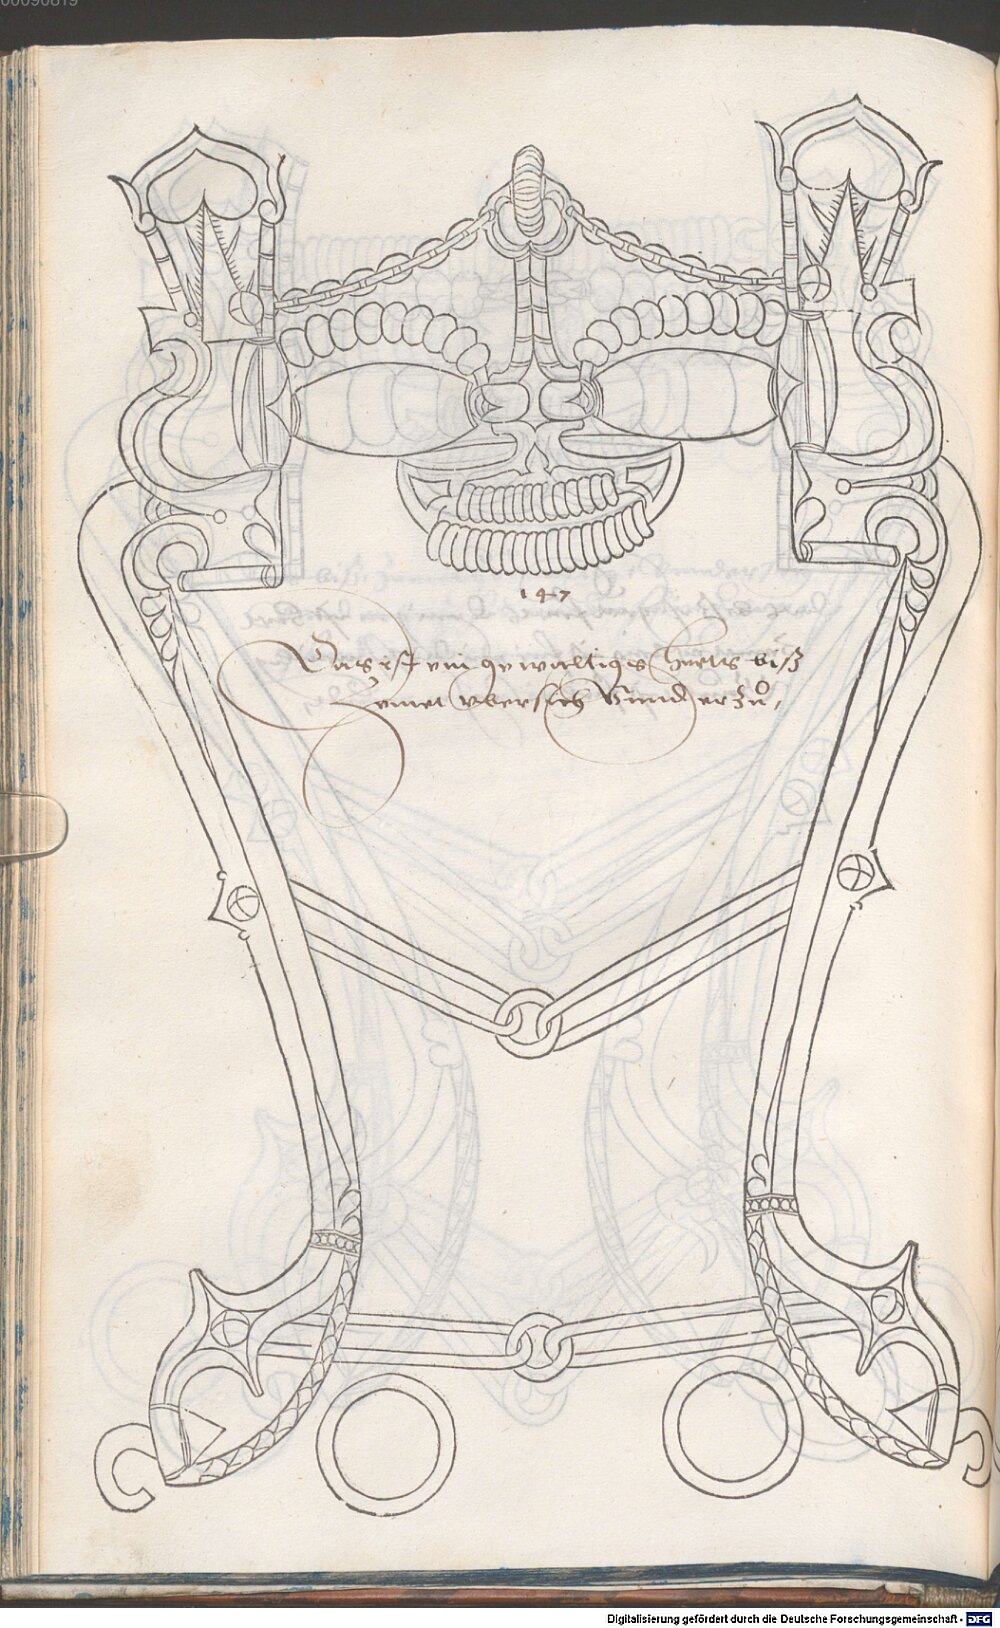 00090819
147
Das ist ein gewaltiges hertts biß
Zeinet vbersich Vnnd herzů,
Digitalisierung gefördert durch die Deutsche Forschungsgemeinschaft - DFG